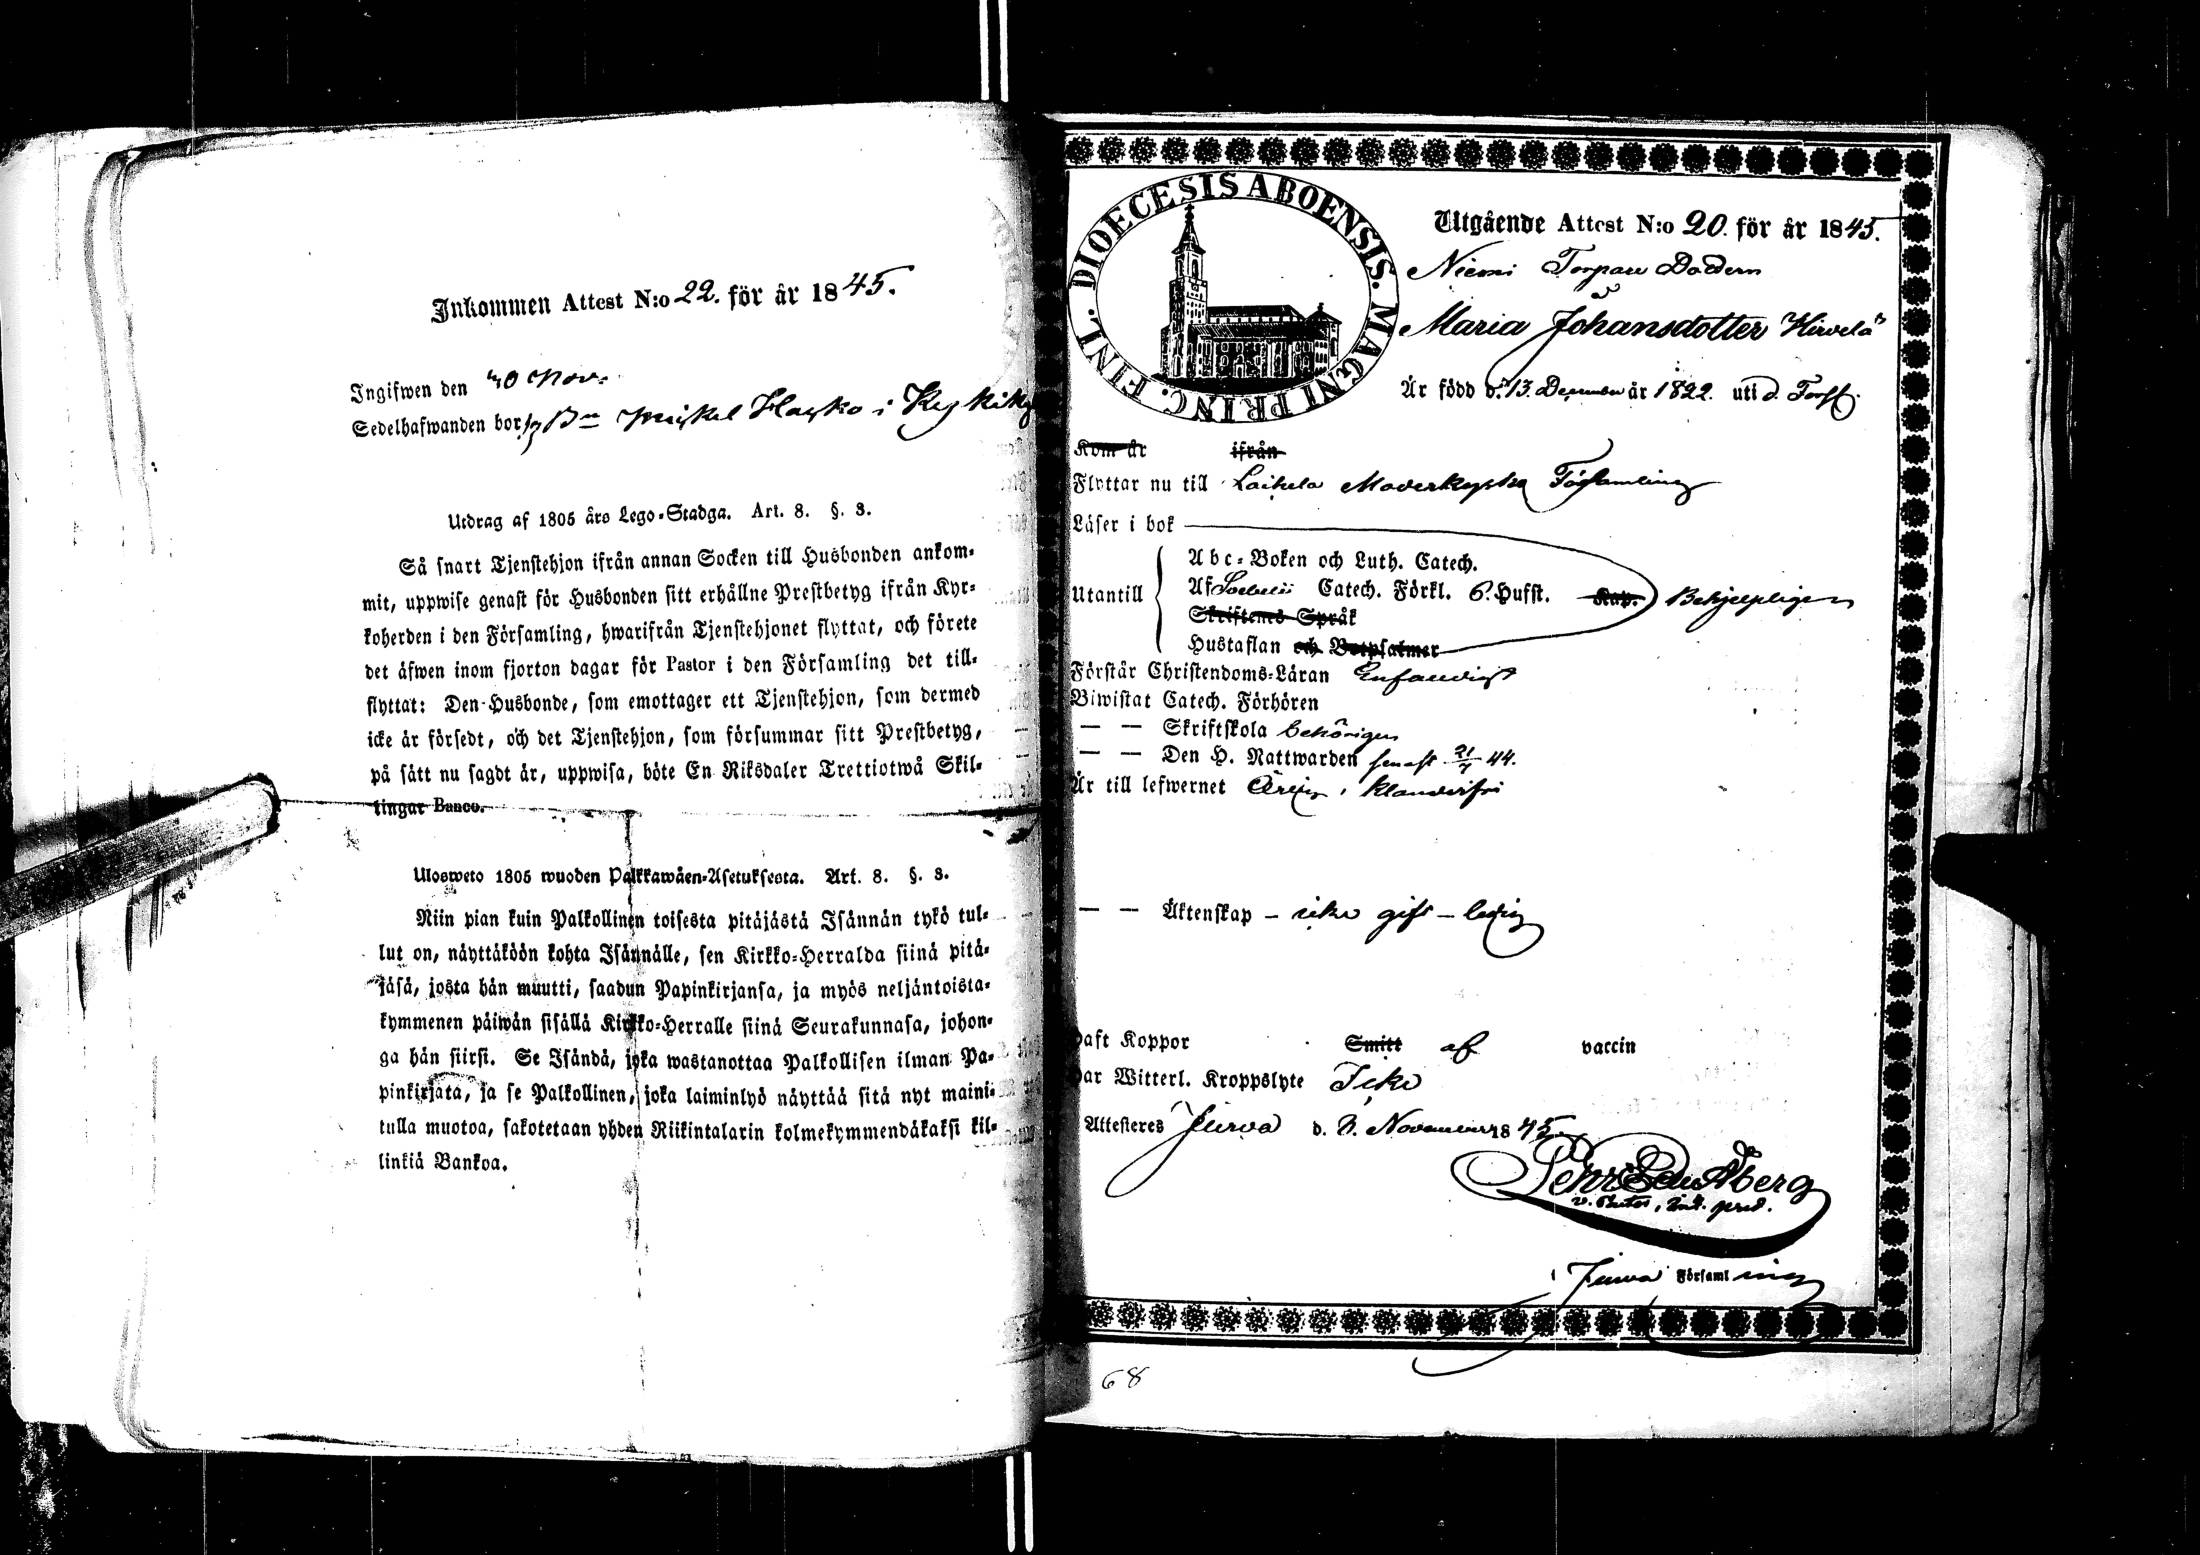 Inkommen Attest N:o 22. för år 1845.
Ingifwen den 30 Nov.
Sedelhafwanden bor Bn Mickel i
Utdrag af 1805 års Lego-Stadga. Art. 8. §. 3.
Så snart Tjenstehjon ifrån annan Socken till Husbonden ankom-
mit, uppwise genast för Husbonden sitt erhållne Prestbetyg ifrån Kyr-
koherden i den Församling, hwarifrån Tjenstehjonet flyttat, och förete
det äfwen inom fjorton dagar för Pastor i den Församling det till-
flyttat: Den Husbonde, som emottager ett Tjenstehjon, som dermed
icke är försedt, och det Tjenstehjon, som försummar sitt Prestbetyg,
på sätt nu sagdt är, uppwisa, böte En Riksdaler Trettiotwå Skil-
lingar Banco.
Ulosweto 1805 wuoden Palkkawäen-Asetuksesta. Art. 8. §. 3.
Niin pian kuin Palkollinen toisesta pitäjästä Isännän tykö tul-
lut on, näyttäköön kohta Isännälle, sen Kirkko-Herralda siinä pitä-
jäsä, josta hän muutti, saadun Papinkirjansa, ja myös neljäntoista-
kymmenen päiwän sisällä Kirkko-Herralle siinä Seurakunnasa, johon-
ga hän siirsi. Se Isändä, joka wastanottaa Palkollisen ilman Pa-
pinkirjata, ja se Palkollinen, joka laiminlyö näyttää sitä nyt maini-
tulla muotoa, sakotetaan yhden Riikintalarin kolmekymmendäkaksi kil-
linkiä Bankoa.
DIOECESIS ABOENSIS. MAGNI PRINC. FINL.
Utgående Attest N:o 20. för år 1845.
Niemi Torpare Dottern
Maria Johansdotter Hirvelä
Är född d. 13 December år 1822. uti d. Förs.
Kom år ifrån
Flyttar nu till Laihela Moderkyrko Församling
Läser i bok
Utantill
Abc-Boken och Luth. Catech.
Af Sebelii Catech. Förkl. 6. Hufst. Kap. Behjelpligen
Skriftenes Språk
Hustaflan och Botpsalmer
Förstår Christendoms-Läran Enfaldigt
Biwistat Catech. Förhören
— — Skriftskola behörigen
— — Den H. Nattwarden senast 21/7 44.
Är till lefwernet Ärlig, klanderfri
— — Äktenskap – icke gift – ledig
Haft Koppor Smitt af vaccin
Har Witterl. Kroppslyte Icke
Attesteres Jurva d. November 1845.
Pehr Åberg
v. Pastor,
i Jurva Församling
68